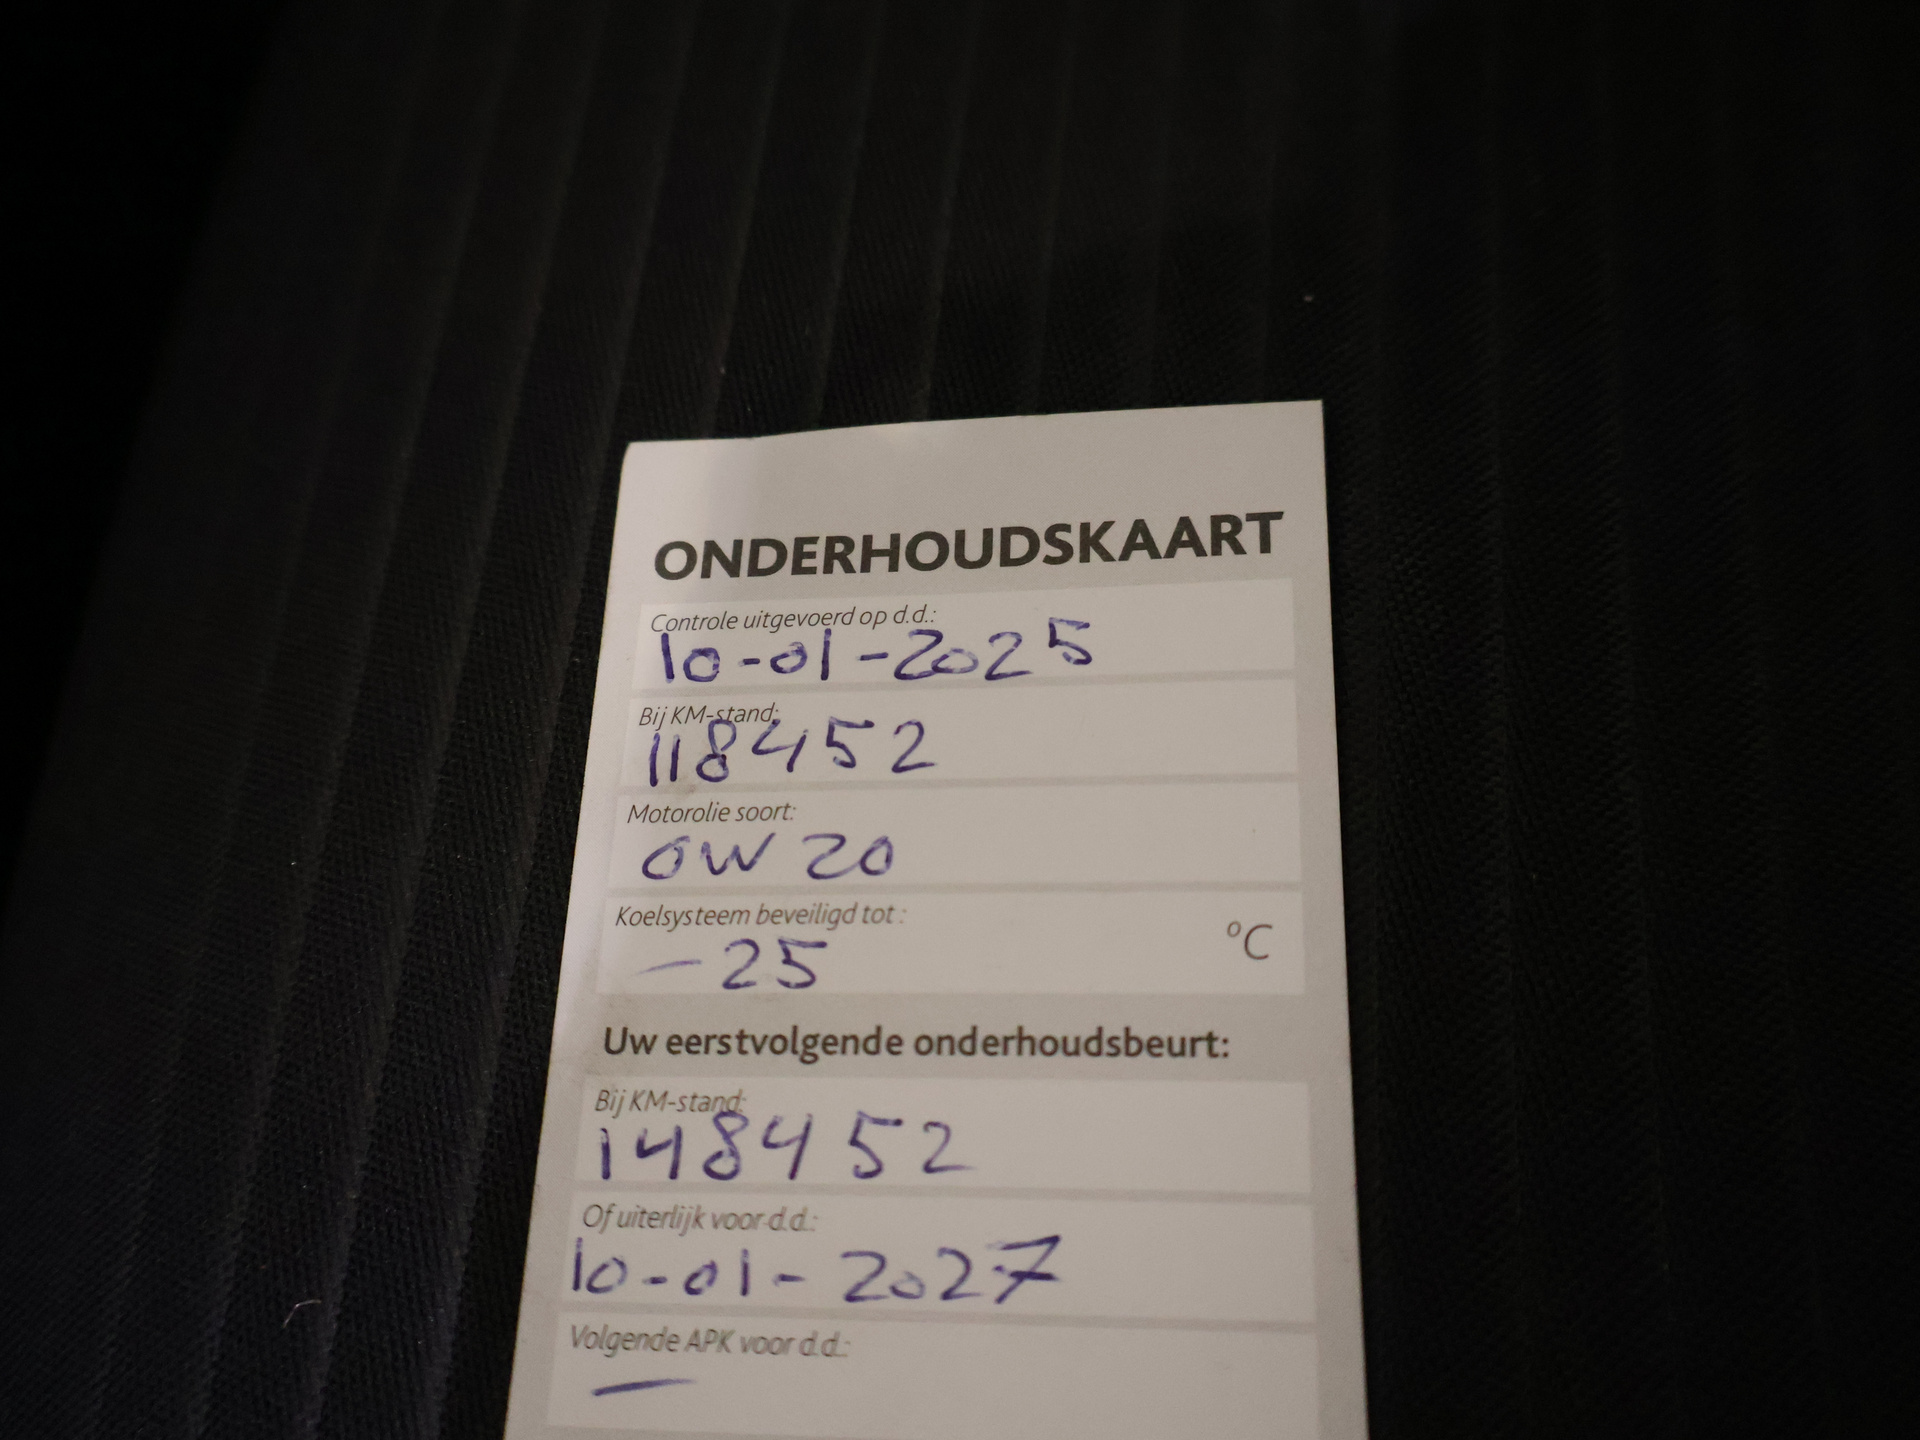 ONDERHOUDSKAART
Controle uitgevoerd op d.d.:
10-01-2025
Bij KM-stand:
118452
Motorolie soort:
0W 20
Koelsysteem beveiligd tot :
-25 °C
Uw eerstvolgende onderhoudsbeurt:
Bij KM-stand:
148452
Of uiterlijk voor d.d.:
10-01-2027
Volgende APK voor d.d.:
—